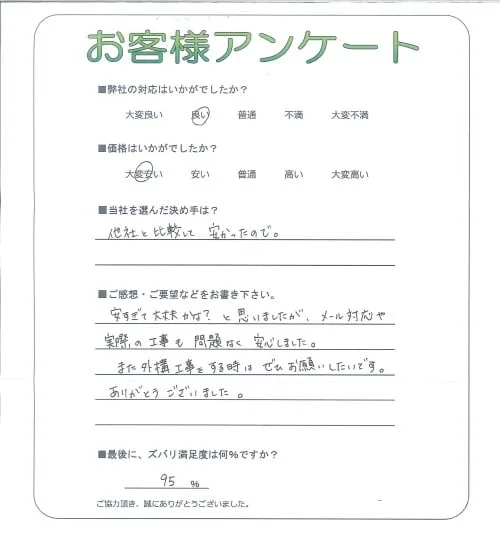 お客様アンケート
■弊社の対応はいかがでしたか？
大変良い 良い 普通 不満 大変不満
■価格はいかがでしたか？
大変安い 安い 普通 高い 大変高い
■当社を選んだ決め手は？
他社と比較して安かったので。
■ご感想・ご要望などをお書き下さい。
安すぎて大丈夫かな？と思いましたが、メール対応や
実際の工事も問題なく安心しました。
また外構工事をする時はぜひお願いしたいです。
ありがとうございました。
■最後に、ズバリ満足度は何%ですか？
95 %
ご協力頂き、誠にありがとうございました。